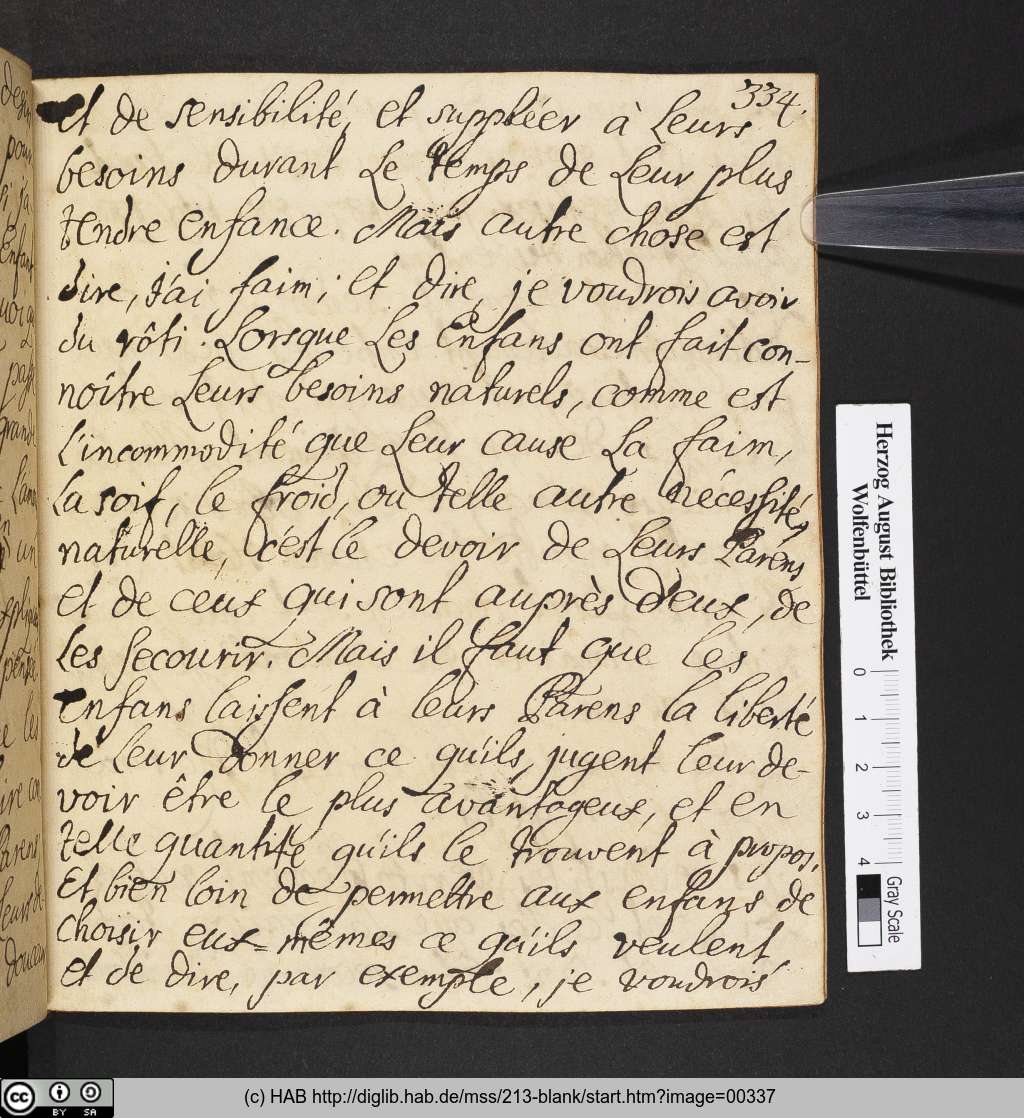 334.
et de sensibilité, et suppléer à Leurs
besoins durant Le temps de Leur plus
tendre enfance. Mais autre chose est
dire, j'ai faim; et dire, je voudrois avoir
du rôti. Lorsque Les Enfans ont fait con-
noître Leurs besoins naturels, comme est
l'incommodité que Leur cause La faim,
La soif, le froid, ou telle autre nécessité
naturelle, c'est le devoir de Leurs Parens
et de ceux qui sont auprès d'eux, de
Les secourir. Mais il faut que les
Enfans laissent à leurs Parens la liberté
de Leur donner ce qu'ils jugent leur de-
voir être le plus avantageux, et en
telle quantité qu'ils le trouvent à propos,
Et bien loin de permettre aux enfans de
choisir eux-mêmes ce qu'ils veulent,
et de dire, par exemple, je voudrois
Herzog August Bibliothek
Wolfenbüttel
0 1 2 3 4
Gray Scale
cc BY SA
(c) HAB http://diglib.hab.de/mss/213-blank/start.htm?image=00337